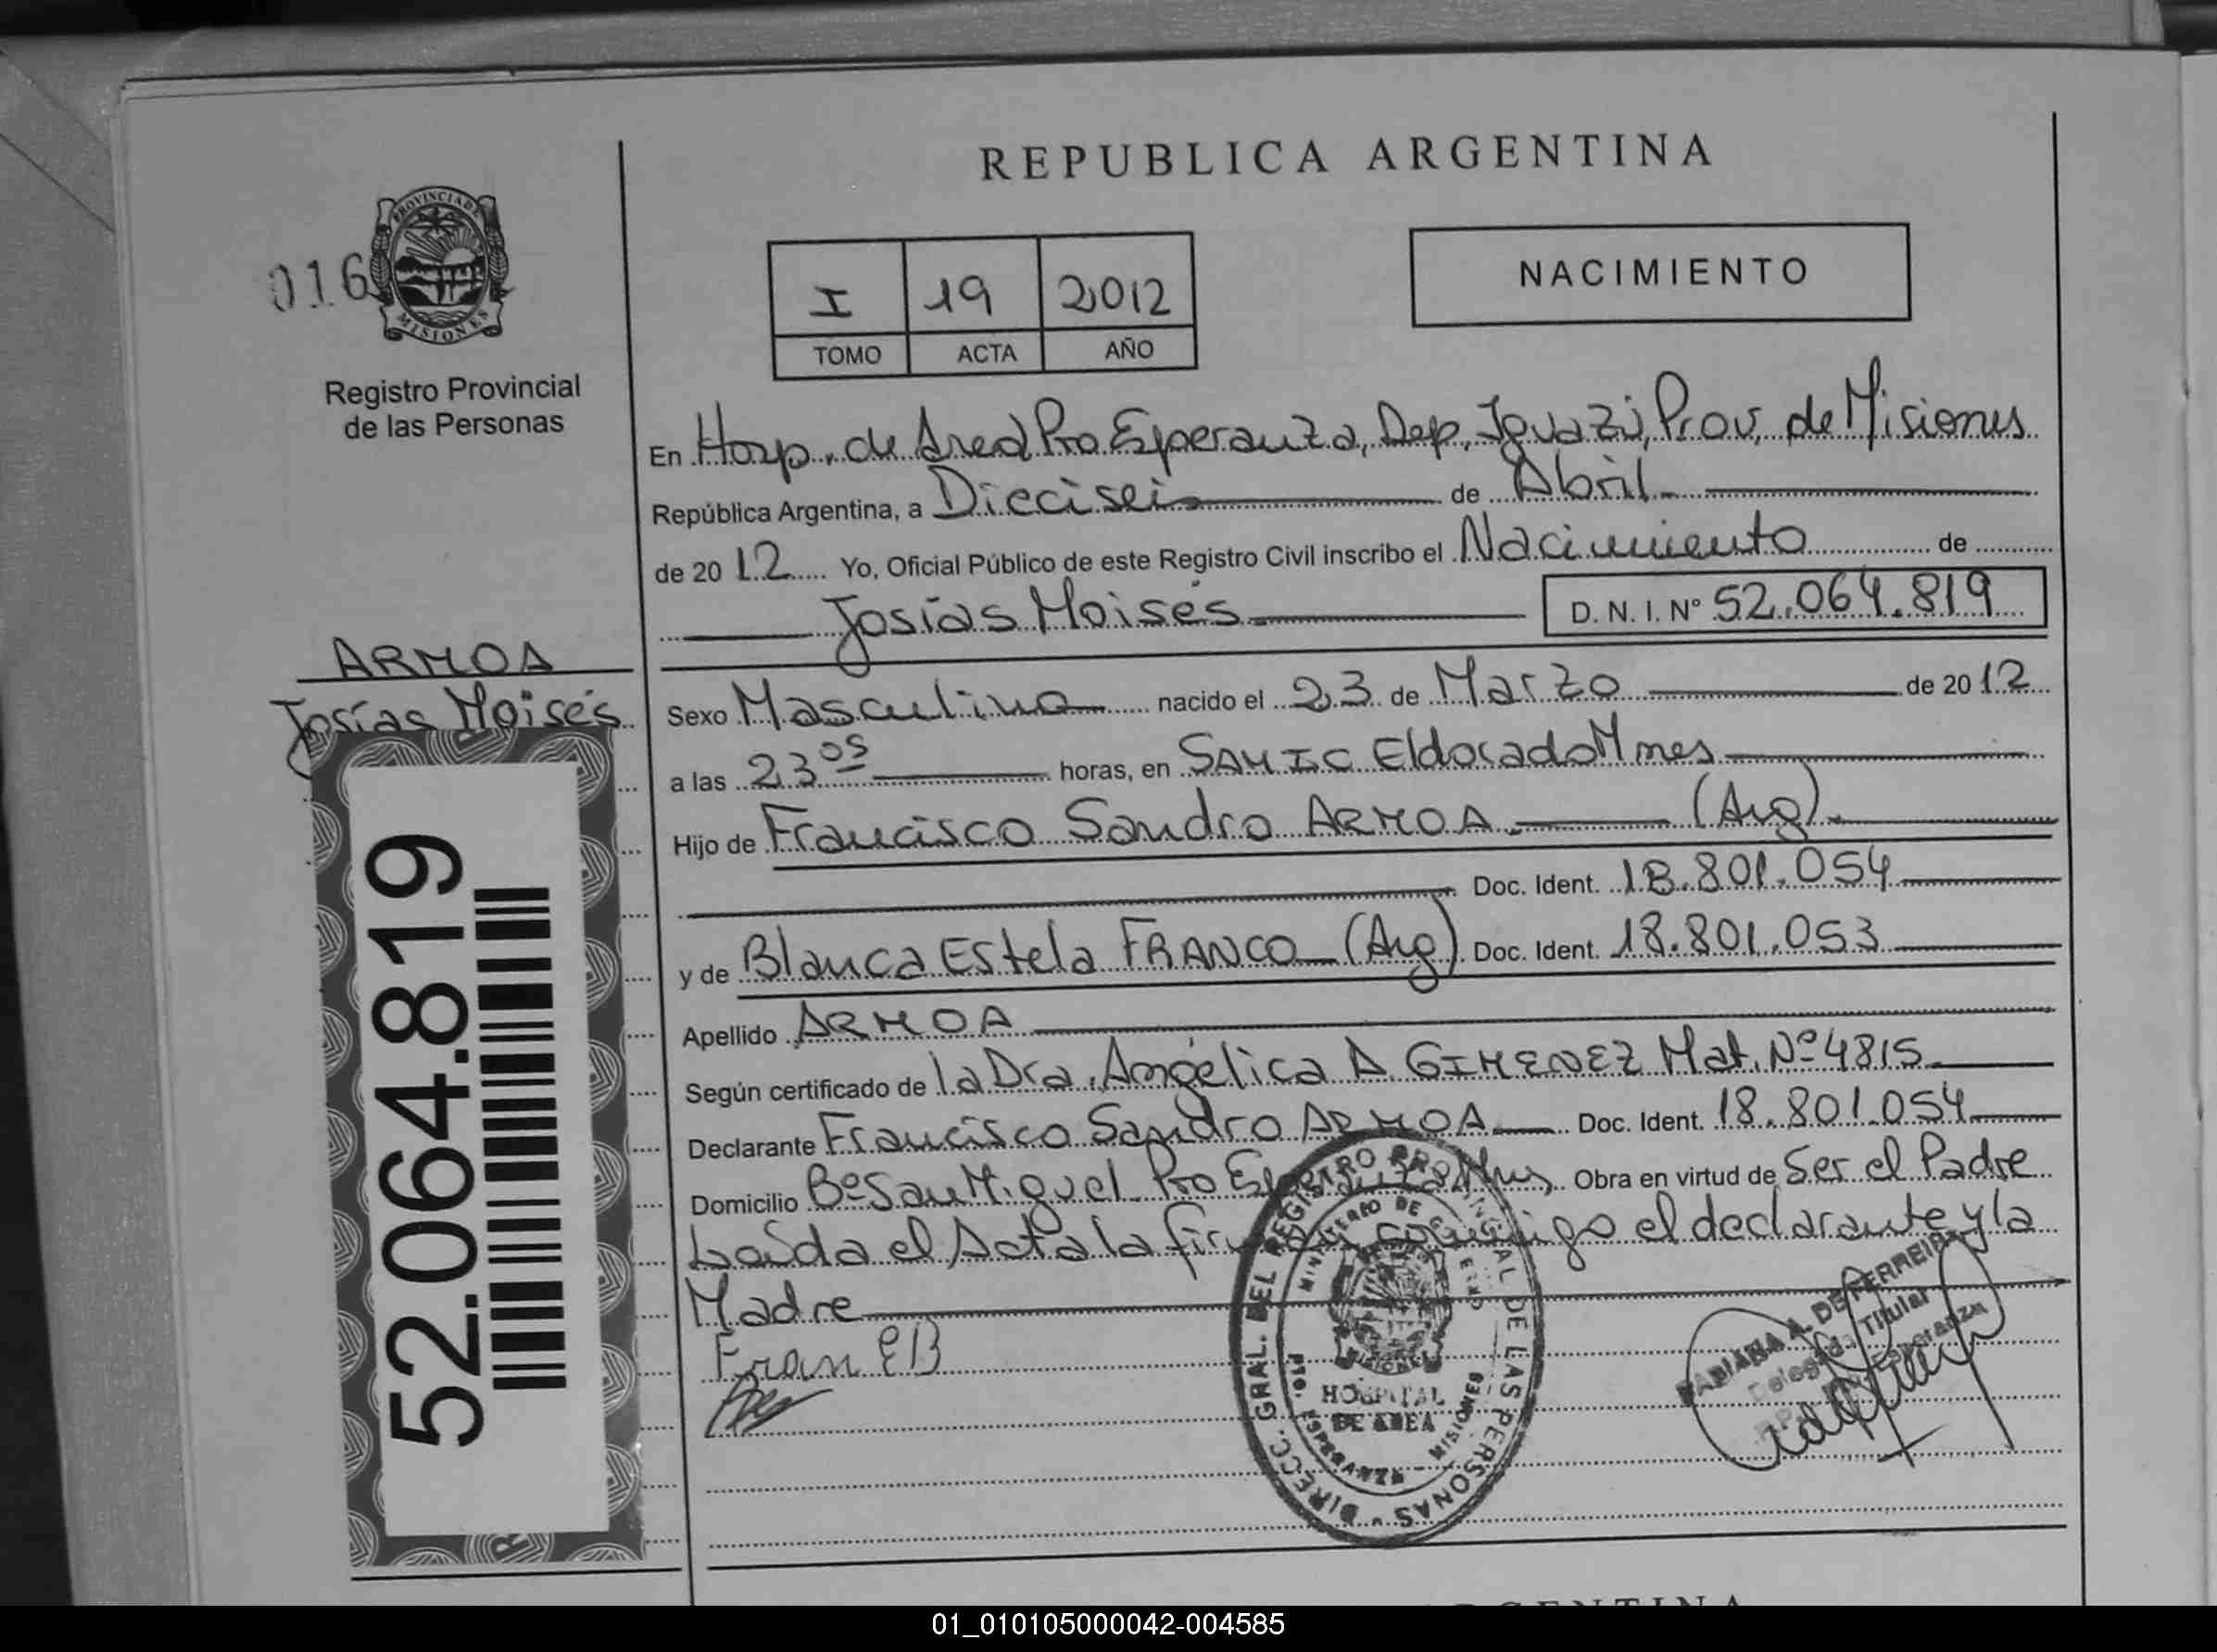 REPUBLICA ARGENTINA
016
PROVINCIA DE
MISIONES
Registro Provincial
de las Personas
I 19 2012
TOMO ACTA AÑO
NACIMIENTO
En Hosp. de Area Pto Esperanza, Dep, Iguazú, Prov, de Misiones
República Argentina, a Dieciseis de Abril
de 20 12 Yo, Oficial Público de este Registro Civil inscribo el Nacimiento de
Josías Moisés D. N. I. N° 52.064.819
ARMOA
Josías Moisés
Sexo Masculino nacido el 23 de Marzo de 20 12
a las 23 05 horas, en SAMIC Eldorado Mnes
Hijo de Francisco Sandro ARMOA (Arg).
Doc. Ident. 18.801.054
y de Blanca Estela FRANCO (Arg) Doc. Ident. 18.801.053
Apellido ARMOA
Según certificado de la Dra. Angélica A. GIMENEZ Mat. Nº 4815
Declarante Francisco Sandro ARMOA Doc. Ident. 18.801.054
Domicilio Bº San Miguel Pto Esperanza Mnes, Obra en virtud de Ser el Padre
Leída el Acta la firman conmigo el declarante y la
Madre
Fran EB
52.064.819
DIRECC. GRAL. DEL REGISTRO PROVINCIAL DE LAS PERSONAS
MINISTERIO DE GOBIERNO
MISIONES
HOSPITAL
DE AREA
PTO. ESPERANZA - MISIONES
FABIANA A. DE FERREIRA
Delegada Titular
Esperanza
01_010105000042-004585